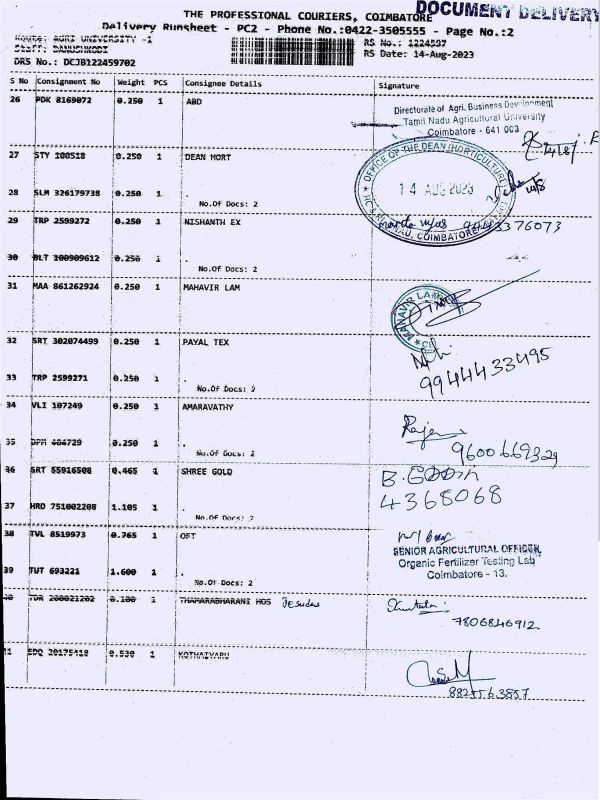 DOCUMENT DELIVERY
THE PROFESSIONAL COURIERS, COIMBATORE
Delivery Runsheet - PC2 - Phone No.:0422-3505555 - Page No.:2
Route: AGRI UNIVERSITY -1
Staff: DANUSHKODI
DRS No.: DCJB122459702
RS No.: 1224597
RS Date: 14-Aug-2023
S No Consignment No Weight PCS Consignee Details Signature
26 PDK 8169072 0.250 1 ABD
Directorate of Agri. Business Development
Tamil Nadu Agricultural University
Coimbatore - 641 003
27 STY 100518 0.250 1 DEAN HORT
OFFICE OF THE DEAN (HORTICULTURE)
14 AUG 2023
COIMBATORE
28 SLM 326179738 0.250 1 .
No.Of Docs: 2
29 TRP 2599272 0.250 1 NISHANTH EX
9443376073
30 DLT 100909612 0.250 1 .
No.Of Docs: 2
31 MAA 861262924 0.250 1 MAHAVIR LAM
32 SRT 302074499 0.250 1 PAYAL TEX
9944433495
33 TRP 2599271 0.250 1 .
No.Of Docs: 2
34 VLI 107249 0.250 1 AMARAVATHY
9600669329
35 DPM 484729 0.250 1 .
No.Of Docs: 2
36 SRT 55916508 0.465 1 SHREE GOLD
4368068
37 HRD 751002208 1.105 1 .
No.Of Docs: 2
38 TVL 8519973 0.765 1 OFT
SENIOR AGRICULTURAL OFFICER,
Organic Fertilizer Testing Lab
Coimbatore - 13.
39 TUT 693221 1.600 1 .
No.Of Docs: 2
40 TDR 200021202 0.100 1 THAMARABHARANI HOS Jesudas
7806846912
41 EDQ 20175418 0.530 1 KOTHAIVARU
8825563857